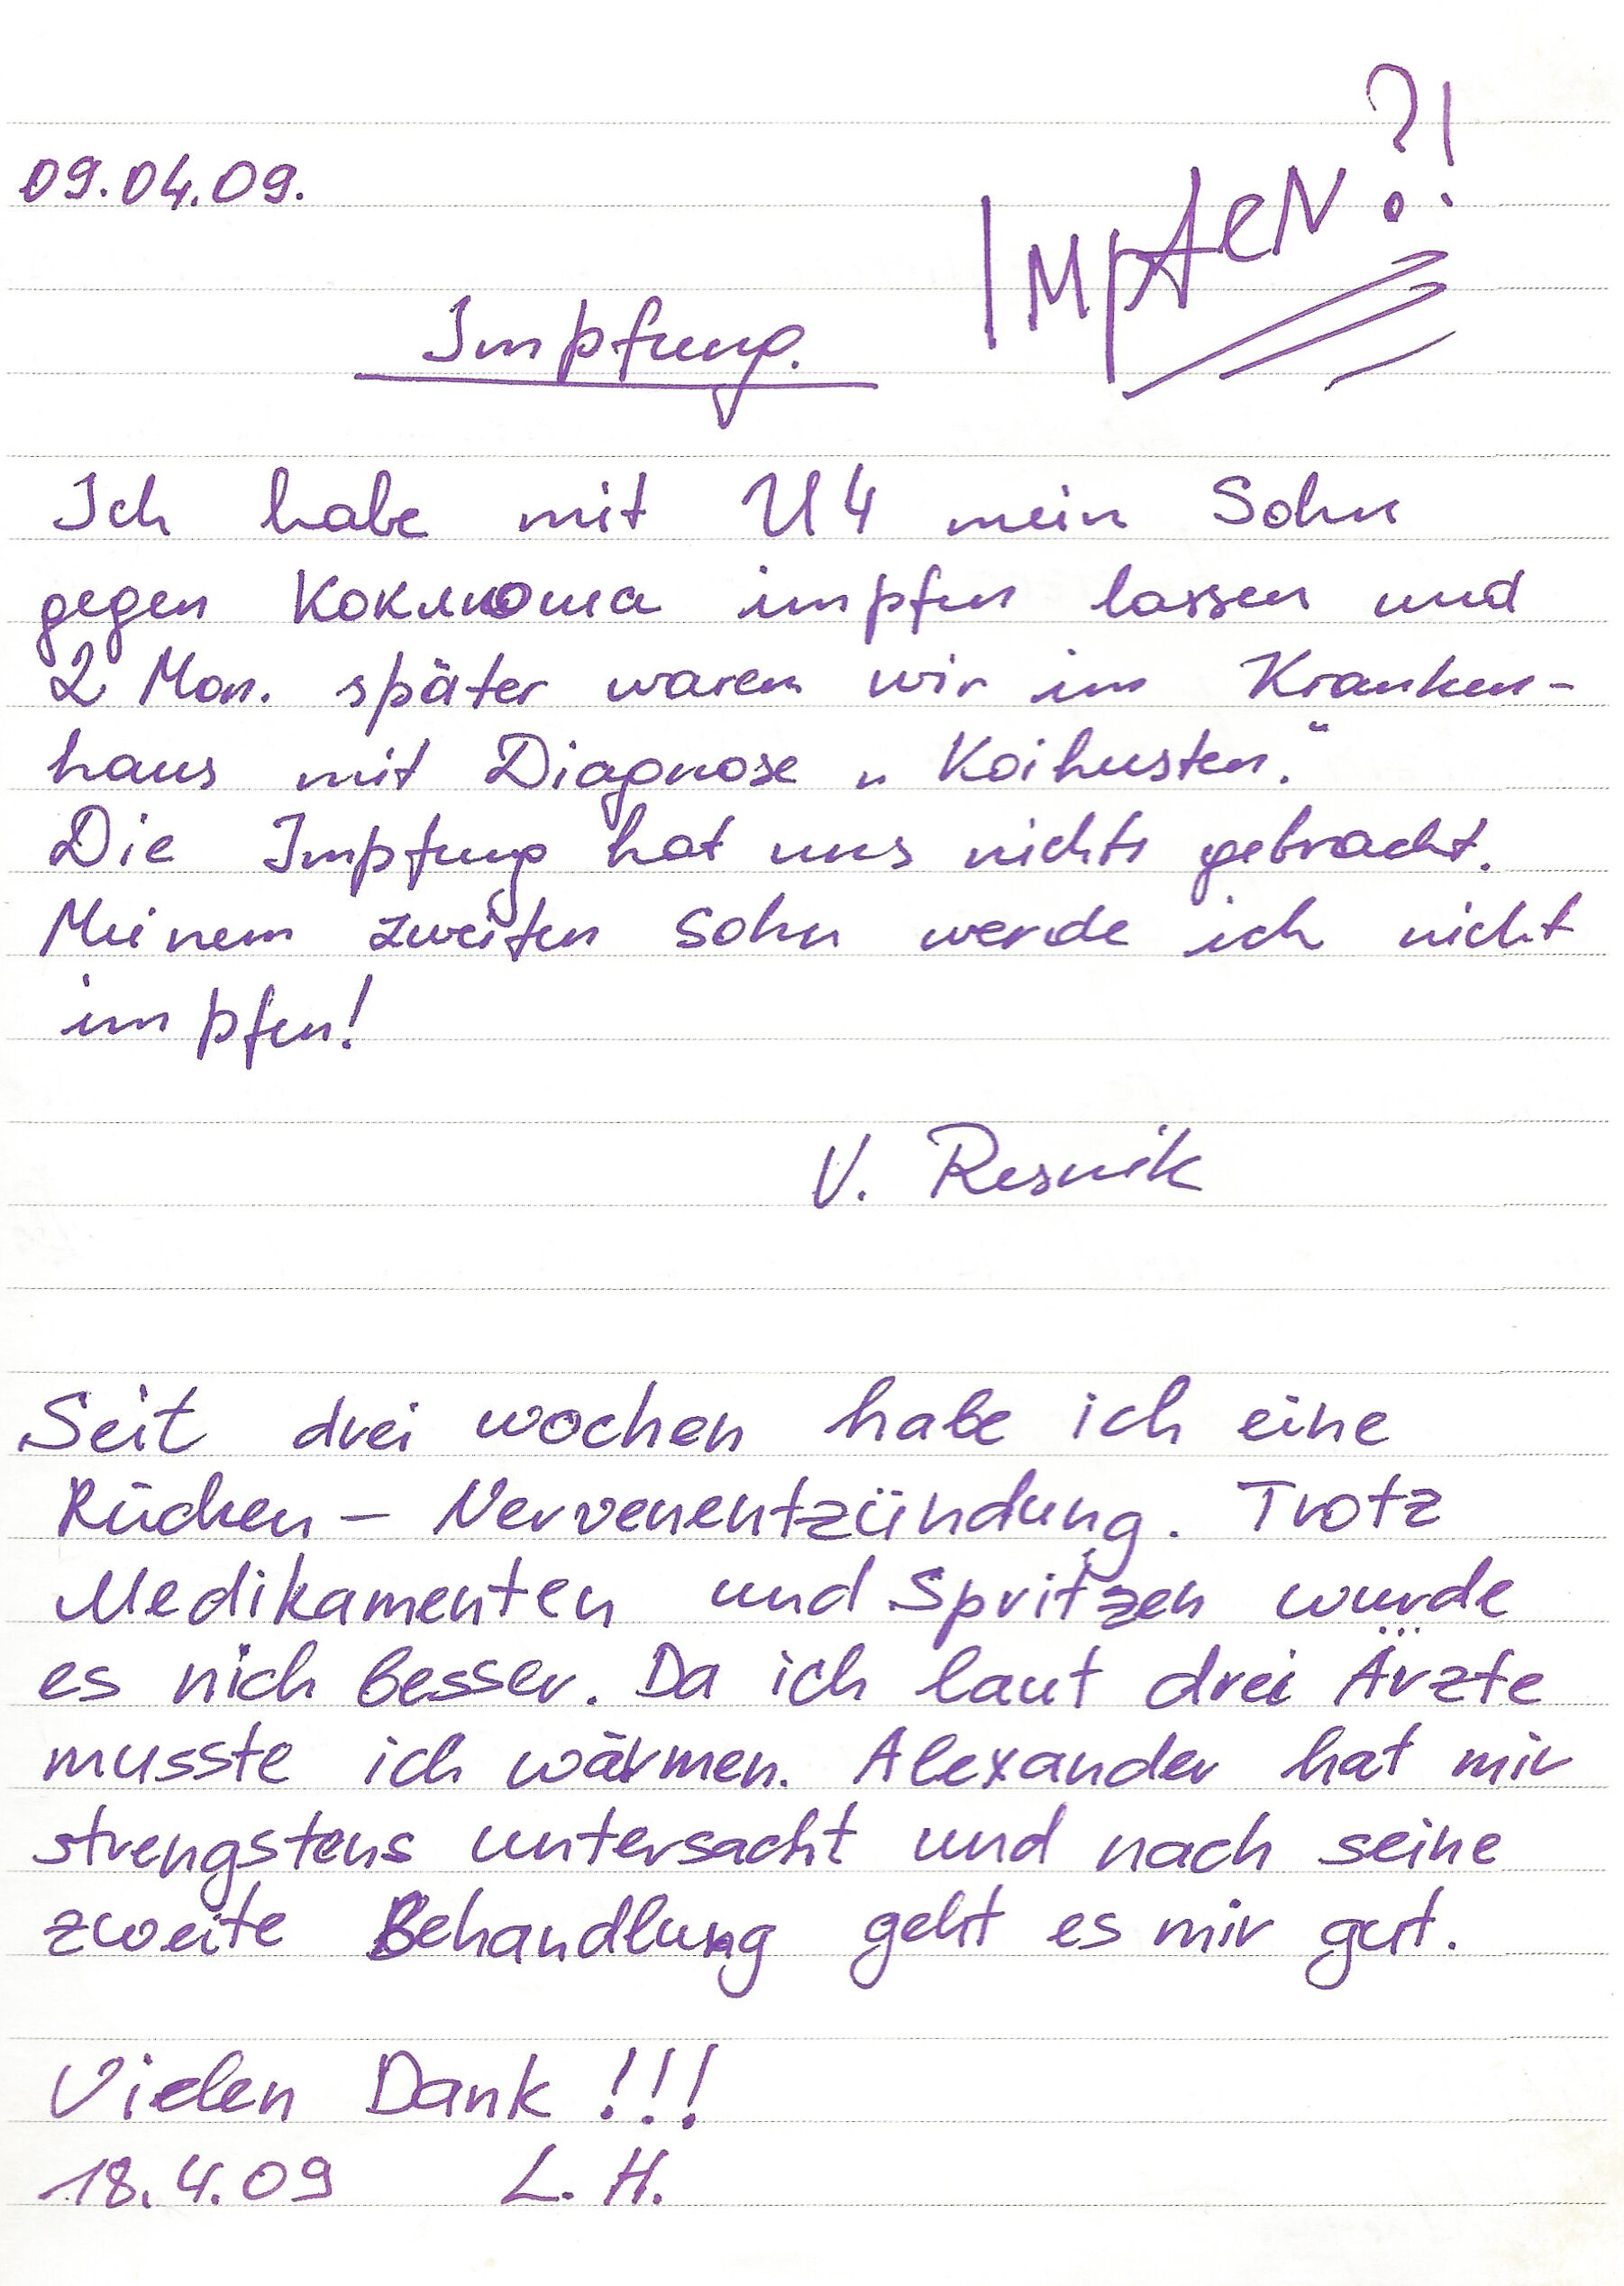 09.04.09.
IMPfeN?!
Impfung.
Ich habe mit U4 mein Sohn
gegen Коклюша impfen lassen und
2 Mon. später waren wir im Kranken-
haus mit Diagnose „Koihusten."
Die Impfung hat uns nichts gebracht.
Meinem zweiten Sohn werde ich nicht
impfen!
V. Resnik
Seit drei wochen habe ich eine
Rücken - Nervenentzündung. Trotz
Medikamenten und Spritzen wurde
es nich besser. Da ich laut drei Ärzte
musste ich wärmen. Alexander hat mir
strengstens untersacht und nach seine
zweite Behandlung geht es mir gut.
Vielen Dank !!!
18.4.09 L. H.